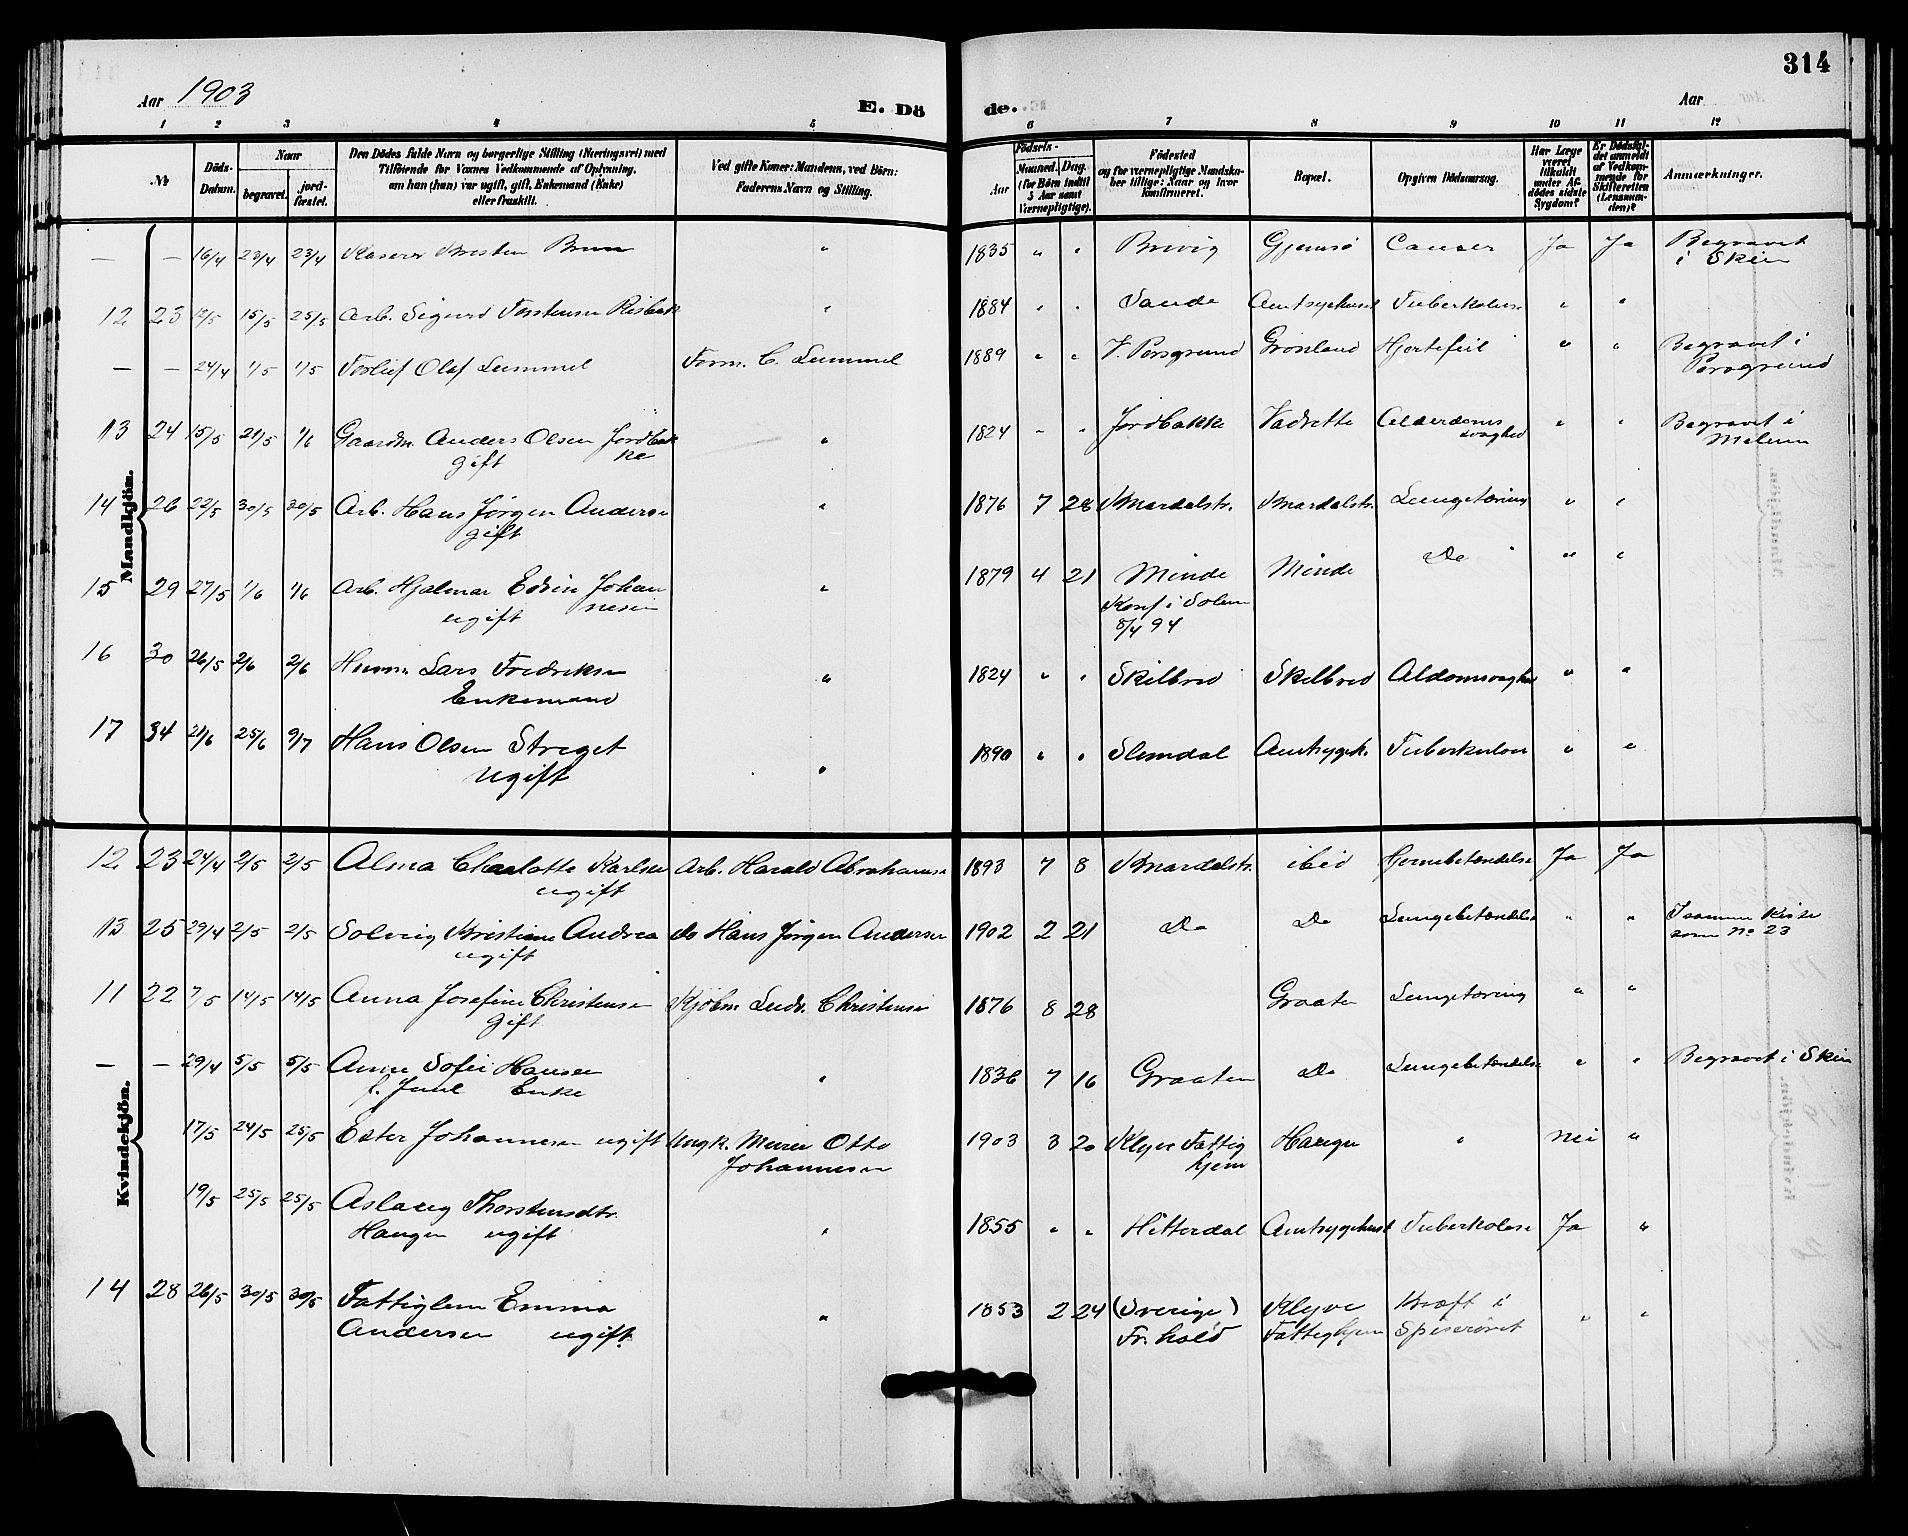 314
Aar 1903
E. Dö
de.
Aar
1 2 3 4 5 6 7 8 9 10 11 12
№
Döds-Datum.
Naar
begravet.
jord-fæstet.
Den Dödes fulde Navn og borgerlige Stilling (Næringsvei) med
Tilföiende for Voxnes Vedkommende af Oplysning,
om han (hun) var ugift, gift, Enkemand (Enke)
eller fraskilt.
Ved gifte Koner: Mandens, ved Börn:
Faderens Navn og Stilling.
Födsels-
Aar
Maaned. Dag.
(for Börn indtil
5 Aar samt
Værnepligtige).
Födested
og for værnepligtige Mandska-
ber tillige: Naar og hvor
konfirmeret.
Bopæl.
Opgiven Dödsaarsag.
Har Læge
været
tilkaldt
under Af-
dödes sidste
Sygdom?
Er Dödsfal-
det anmeldt
af Vedkom-
mende for
Skifteretten
(Lensman-
den)?
Anmærkninger.
Mandkjön.
— — 16/4 23/4 23/4 Kaserer Kresten Brun " 1835 " " Brevig Gjemsø Cancer Ja Ja Begravet
i Skien
12 23 12/5 15/5 25/5 Arb. Sigurd Torstensen Risbak " 1884 " " Sande Amtsygehuset Tuberkolose " "
— — 24/4 1/5 1/5 Torlief Olaf Lummel Form. C. Lummel 1889 " " V. Porsgrund Grønland Hjertefeil " " Begravet i
Porsgrund
13 24 15/5 21/5 1/6 Gaardm Anders Olsen Jordbak
ke
gift " 1824 " " Jordbakke Vadrette Alderdoms
svaghed " " Begravet i
Melum
14 26 22/5 30/5 30/5 Arb. Hans Jørgen Anderse
gift " 1876 7 28 Knardalstr. Knardalstr. Lungetæring " "
15 29 27/5 1/6 1/6 Arb. Hjalmar Edvin Johan
nesen
ugift " 1879 4 21 Minde Minde Do " "
Konf i Solum
8/4 94
16 30 26/5 2/6 2/6 Husm. Lars Fredriksen
Enkemand " 1824 " " Skilbred Skilbred Aldomsvaghed " "
17 34 21/6 25/6 9/7 Hans Olsen Streget
Ugift " 1890 " " Slemdal Amtsygeh. Tuberkulose " "
Kvindekjön.
12 23 24/4 2/5 2/5 Alma Charlotte Karlsen Arb. Harald Abrahamse 1893 7 8 Knardalstr. ibid Hjernebetændelse Ja Ja
ugift
13 25 29/4 2/5 2/5 Solveig Kristiane Andrea do Hans Jørgen Andersen 1902 2 21 Do Do Lungebetændelse " " I samme Kiste
som No 23
ugift
11 22 7/5 14/5 14/5 Anna Josefine Christense Kjøbm Ludv. Christense 1876 8 28 Graaten Lungetæring " "
gift
— — 29/4 5/5 5/5 Anne Sofie Hansen " 1836 7 16 Graaten Do Lungebetændelse " " Begravet i Skien
f. Juul Enke
17/5 24/5 25/5 Ester Johannesen ugift Ungk. Murer Otto
Johannesen 1903 3 20 Klyve Fattig
hjem Haugen " Nei "
19/5 25/5 25/5 Aslaug Thorstensdtr.
Haugen ugift " 1855 " " Hitterdal Amtsygehuset Tuberkolose Ja "
14 28 26/5 30/5 30/5 Fattiglem Emma
Andersen ugift " 1853 2 24 (Sverige)
Fr.hald Klyve
Fattighjem Kræft i
Spiserøret " "